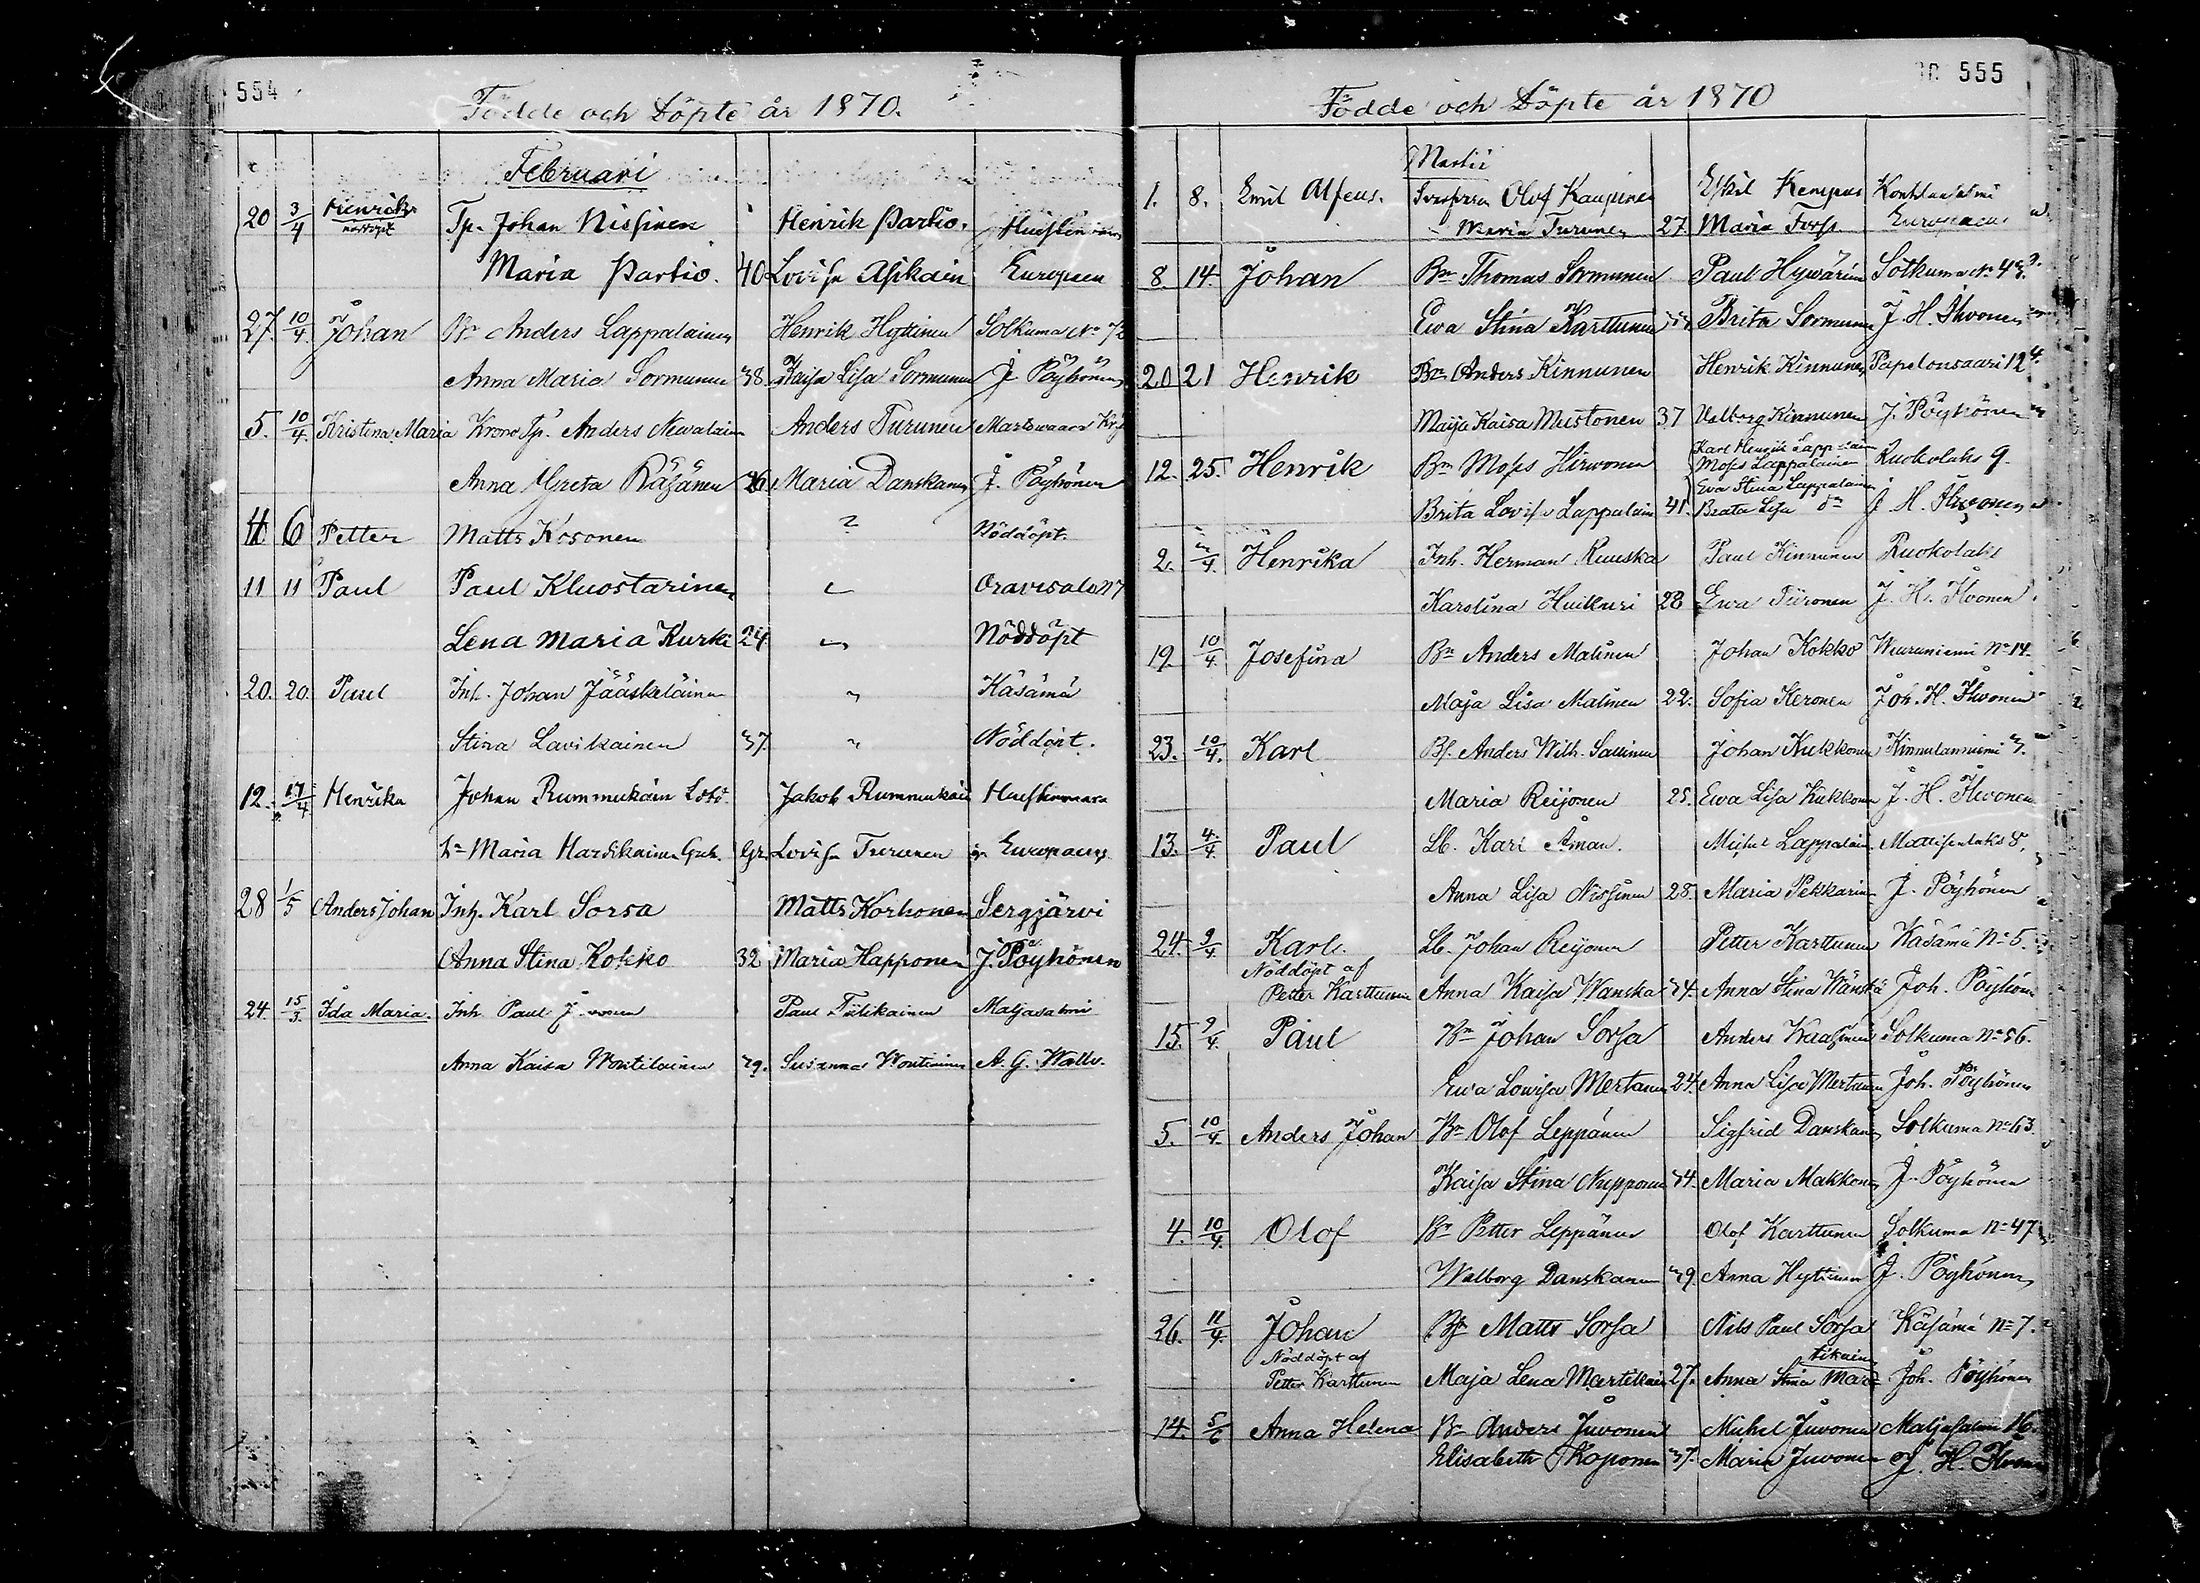 554
Födde och Döpte år 1870.
Februari
20 3/4 Henrik Tp. Johan Nissinen Henrik Partio.
nöddöpt
Maria Partio. 40 Lovisa Asikain Europaeus
27. 10/4. Johan Bn Anders Lappalainen Henrik Hyttinen Solkuma No
Anna Maria Sormunen 38. Kaisa Lisa Sormunen J. Pöyhönen
5. 10/4. Kristina Maria Krono Tp. Anders Newalain Anders Turunen
Anna Greta Räsänen 26. Maria Danskanen J. Pöyhönen
6 Petter Matts Kosonen Nöddöpt.
11 11 Paul Paul Kluostarinen " Oravisalo N7
Lena Maria Kurki 24 " Nöddöpt
20. 20. Paul Inh. Johan Jääskeläinen " Käsämä
Stina Lavikainen 37. " Nöddöpt.
12. 17/4 Henrika Johan Rummukain Jakob Rummukain
Maria Hardikainen Lovisa Turunen Europaeus
28 1/5 Anders Johan Inh. Karl Sorsa Matts Korhonen Sergjärvi
Anna Stina Kokko 32 Maria Happonen J. Pöyhönen
24. 15/3. Ida Maria. Inh. Paul Paul Tiilikainen Maljasalmi
Anna Kaisa Wontilainen 29. Susanna A. G. Walle.
555
Födde och Döpte år 1870
Martii
1. 8. Emil Alfeus. Olof Kaupinen Eskil Kempas
Maria Turunen 27. Maria Forss Europaeus
8. 14. Johan Bn Thomas Sormunen Paul Hywärin Solkuma No 43.
Ewa Stina Karttunen Brita Sormunen J. H. Ihvonen
20 21 Henrik Bn Anders Kinnunen Henrik Kinnunen Papelonsaari 12
Maija Kaisa Mustonen 37 Valborg Kinnunen J. Pöyhönen
12. 25. Henrik Bn Moses Hirvonen Karl Henrik Lappalain Ruokolaks 9.
Moses Lappalainen
Eva Stina Lappalainen
Brita Lovisa Lappalain 41. Beata Lisa dn J. H. Ihvonen
2. 4. Henrika Inh. Herman Ruuska Paul Kinnunen Ruokolaks
Karolina Huikuri 28 Ewa Tiironen J. H. Ihvonen
19. 10/4. Josefina Bn Anders Malinen Johan Kokko Wuoruniemi No 14.
Maja Lisa Malinen 22. Sofia Keronen Joh. H. Ihvonen
23. 10/4. Karl Bs. Anders Wilh. Sallinen Johan Kukkonen Kinnulanniemi 3.
Maria Reijonen 25. Ewa Lisa Kukkonen J. H. Ihvonen
13. 4/4 Paul Lb. Karl Åman. Michel Lappalain. Mattisenlaks 8.
Anna Lisa Nissinen 28. Maria Pekkarinen J. Pöyhönen
24. 9/4 Karl. Lb. Johan Reijonen Petter Karttunen Käsämä No 5.
Nöddöpt af
Petter Karttunen Anna Kaisa Wanska 34. Anna Stina Wänskä Joh. Pöyhönen
15. 9/4. Paul Bn Johan Sorsa Anders Solkuma No 56.
Ewa Lowisa Mertanen 24. Anna Lisa Mertanen Joh. Pöyhönen
5. 10/4. Anders Johan Bn Olof Leppänen Sigfrid Danskanen Solkuma No 63.
Kaisa Stina Nupponen 34. Maria Makkonen J. Pöyhönen
4. 10/4. Olof Bn Petter Leppänen Olof Karttunen Solkuma No 47
Walborg Danskanen 29. Anna Hyttinen J. Pöyhönen
26. 11/4. Johan Bn Matts Sorsa Nils Paul Sorsa Käsämä No 7.
Nöddöpt af
Petter Karttunen Maja Lena Martikain 27. Anna Stina Martikain Joh. Pöyhönen
14. 5/6 Anna Helena Bn Anders Juvonen Michel Juvonen Maljasalmi 16.
Elisabeth Koponen 37. Maria Juvonen J. H. Ihvonen